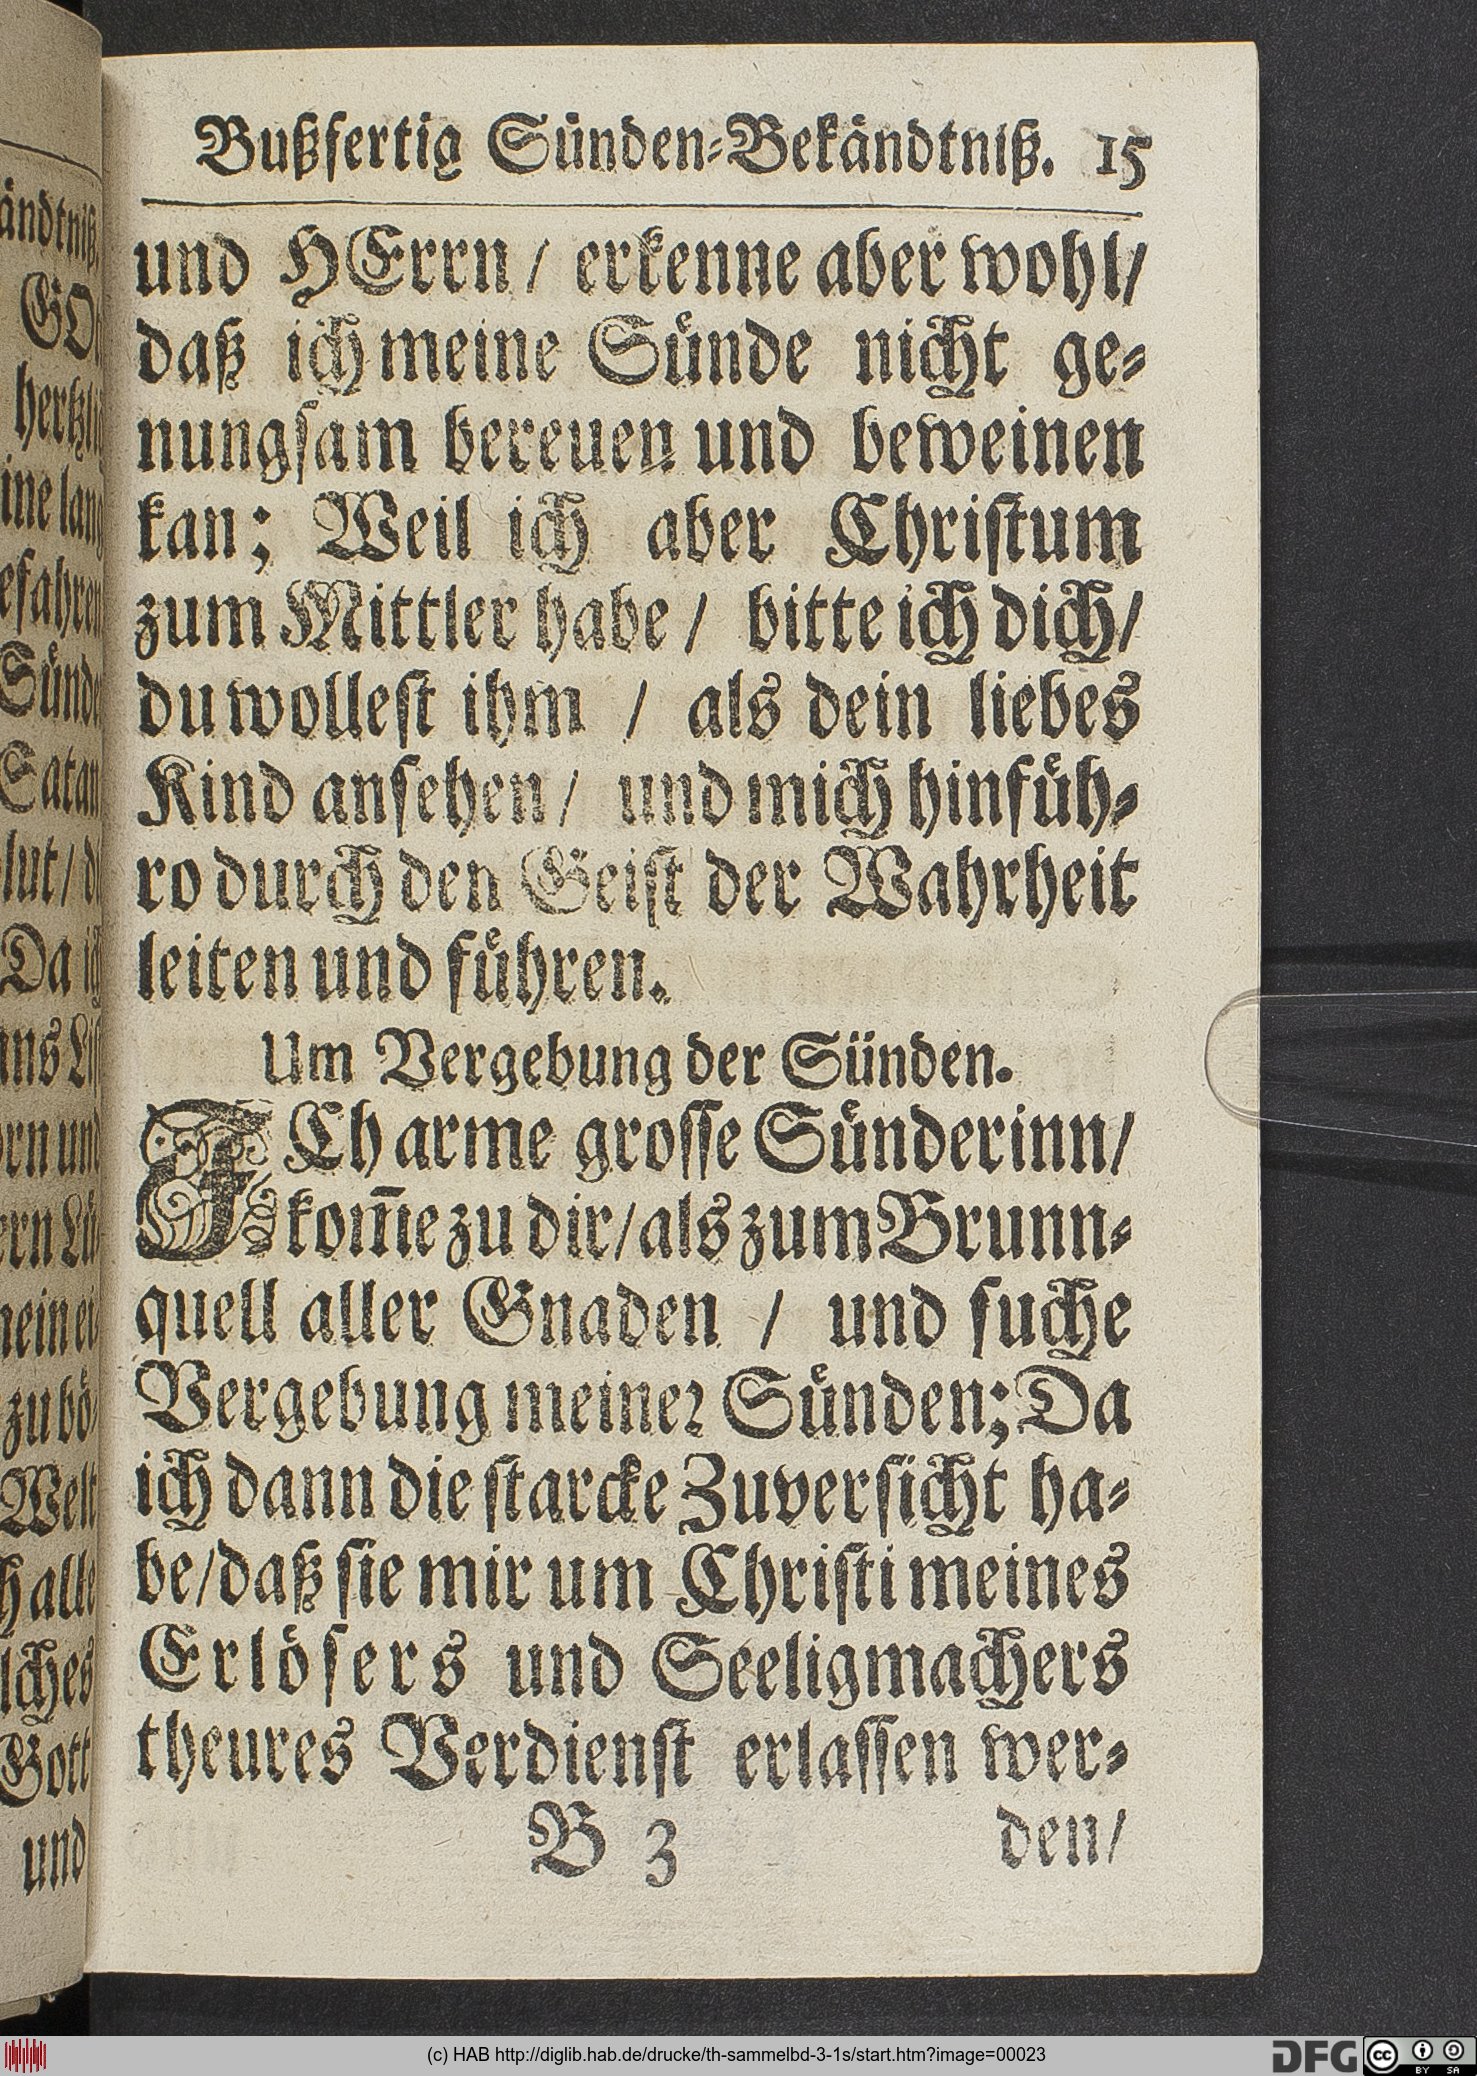 Bußfertig Sünden-Bekändtniß. 15
und HErrn / erkenne aber wohl/
daß ich meine Sünde nicht ge-
nungsam bereuen und beweinen
kan; Weil ich aber Christum
zum Mittler habe / bitte ich dich/
du wollest ihm / als dein liebes
Kind ansehen / und mich hinfüh-
ro durch den Geist der Wahrheit
leiten und führen.
Um Vergebung der Sünden.
ICh arme grosse Sünderinn/
kom̅e zu dir/ als zum Brunn-
quell aller Gnaden / und suche
Vergebung meiner Sünden; Da
ich dann die starcke Zuversicht ha-
be/ daß sie mir um Christi meines
Erlösers und Seeligmachers
theures Verdienst erlassen wer-
B 3 den/
ändtniß.
lang
Sünde
Satan
Da ich
und
Welt
Gott
und
(c) HAB http://diglib.hab.de/drucke/th-sammelbd-3-1s/start.htm?image=00023
DFG
cc BY SA